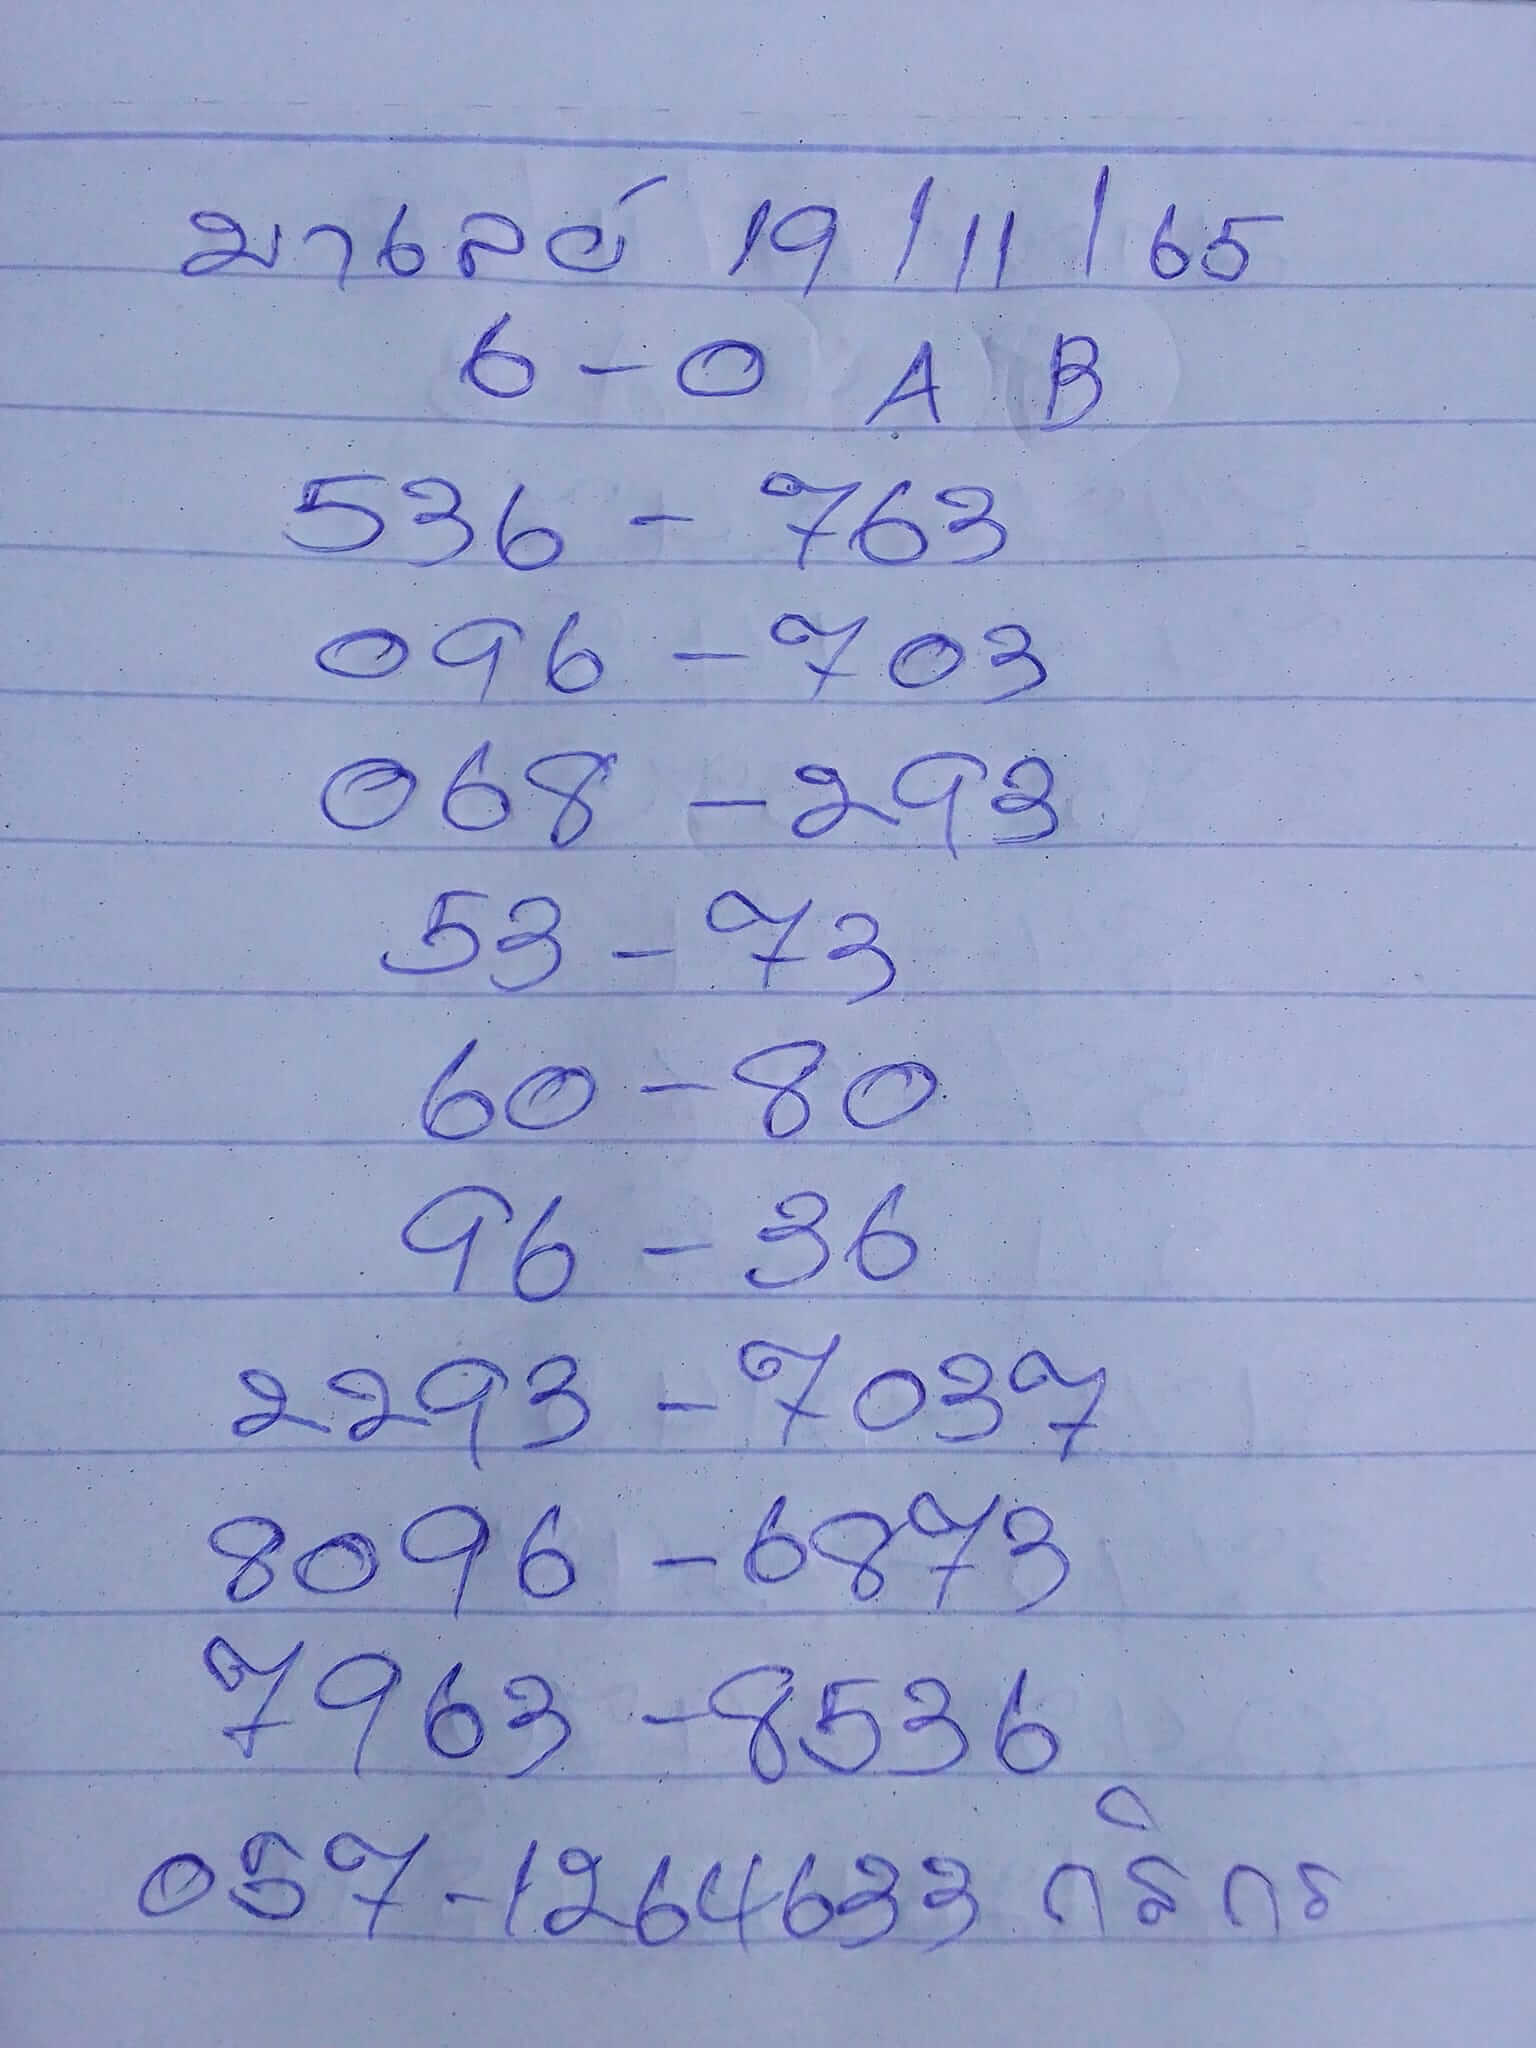 มาเลย์ 19/11/65
6-0 A B
536-763
096-703
068-293
53-73
60-80
96-36
2293-7037
8096-6873
7963-8536
057-1264633 กสิกร